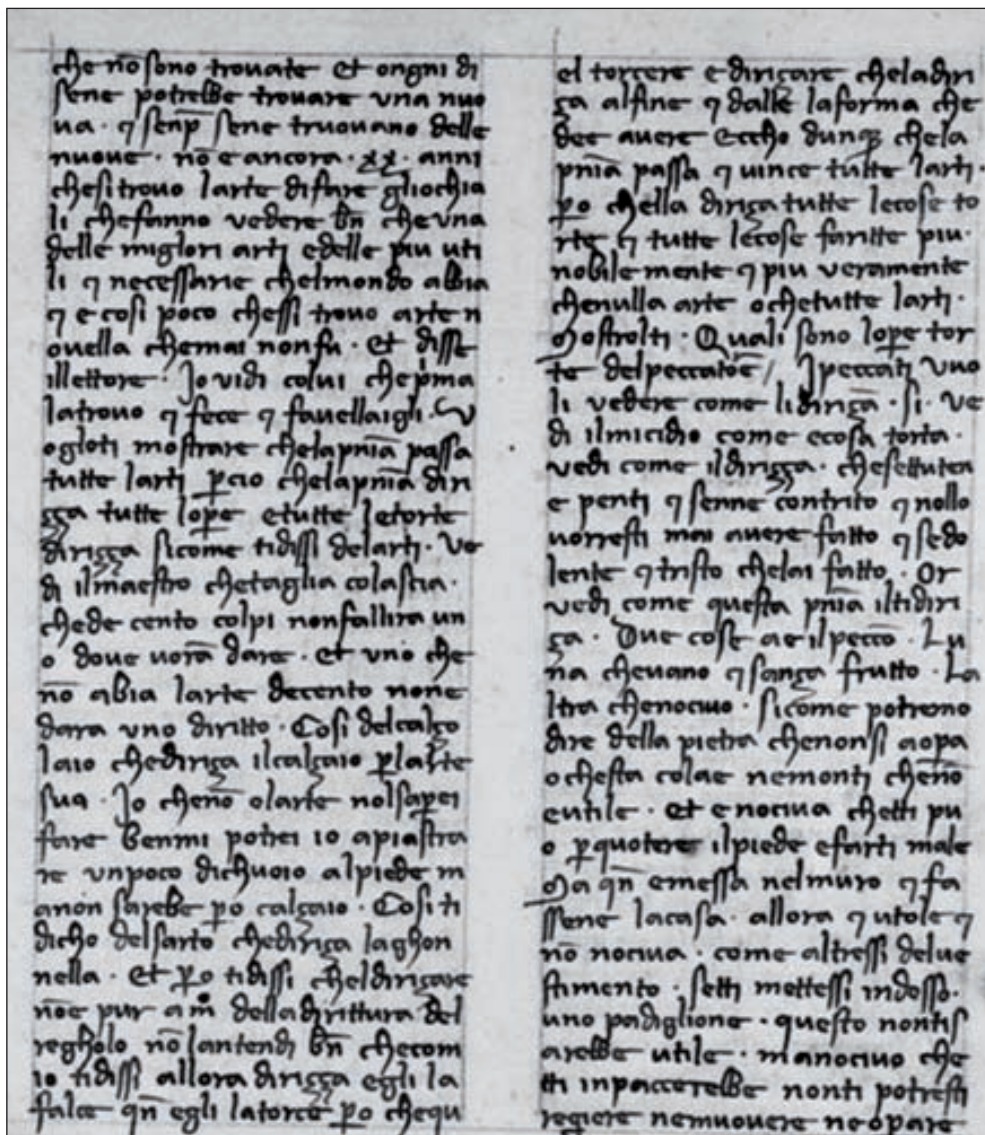 che nō sono trovate et ongni di
sene potrebbe trovare una nuo
va · ⁊ senp̄ sene truovano delle
nuove · nō e ancora · xx · anni
chesi trovo larte difare gliochia
li chefanno vedere bn̄ che una
delle miglori arti edelle piu uti
li ⁊ necessarie chelmondo abbia
⁊ e cosi poco chessi trovo arte n
ovella chemai nonfu · et disse
illettore · Jo vidi colui chep̄ma
latrovo ⁊ fece ⁊ favellaigli · V
ogloti mostrare chelapn̄ia passa
tutte larti p̄cio chelapn̄ia diri
çça tutte lope etutte letorte
diriçça sicome tidissi delarti · Ve
di ilmaestro chetaglia colascia ·
chede cento colpi nonfallira un
o dove vorā dare · et uno che
nō abia larte decento none
dara uno diritto · Cosi delcalço
laio chediriça ilcalçaio p̄larte
sua · Jo chenō olarte nolsap̄ei
fare benmi potrei io apiastra
re unpoco dichuoio alpiede m
anon sarebe p̄o calçaio · Cosi ti
dicho delsarto chediriça laghon
nella · Et p̄o tidissi cheldiriçare
nōe pur am̊ delladirittura del
regholo nō lantendi bn̄ checom
io tidissi allora diriçça egli la
falce qn̄ egli latorce p̄o chequ
el torcere e diriçare cheladiri
ça alfine ⁊ dalle laforma che
dee avere Eccho dunqȝ chela
pn̄ia passa ⁊ vince tutte larti ·
p̄o chella diriça tutte lecose to
rte ⁊ tutte lecose faritte piu ·
nobile mente ⁊ piu veramente
chenulla arte ochetutte larti ·
Mostrolti · Quali sono lope tor
te delpeccatoē / Jpeccati vuo
li vedere come lidiriçā · si · ve
di ilmicidio come ecosa torta ·
vedi come ildiriçça · chesettuten
e penti ⁊ senne contrito ⁊ nollo
vorresti mai avere fatto ⁊ sedo
lente ⁊ tristo chelai fatto · Or
vedi come questa pn̄ia iltidiri
ça · Due cose ae ilpeccō · Lu
na chevano ⁊ sança frutto · La
ltra chenocivo · sicome potremo
dire della pietra chenonsi aopa
ochesta colae nemonti chenō
eutile · et enociva chetti pu
o p̄quotere ilpiede efarti male
Ma qn̄ emessa nelmuro ⁊ fa
ssene lacasa · allora ⁊ utole ⁊
nō nociva · come altressi delve
stimento · setti mettessi indosso ·
uno padiglione · questo nontis
arebbe utile · manocivo che
tti inpaccerebbe nonti potresti
regiere nemuovere neopare